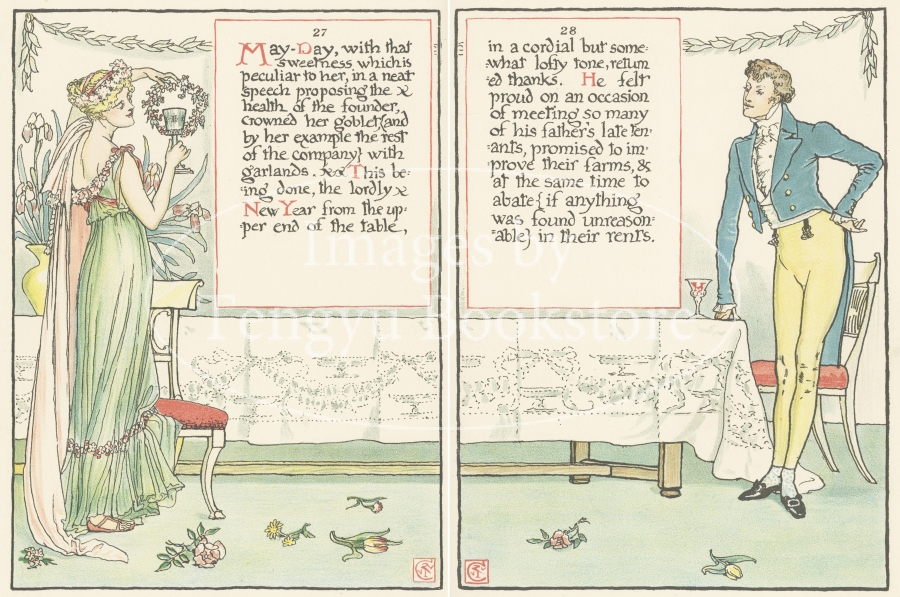 27
May-Day, with that
sweetness, which is
peculiar to her, in a neat
speech proposing the
health of the founder,
crowned her goblet {and
by her example the rest
of the company} with
garlands. This be=
=ing done, the lordly
New Year from the up=
=per end of the table,
28
in a cordial but some=
=what lofty tone, return
=ed thanks. He felt
proud on an occasion
of meeting so many
of his father's late ten=
=ants, promised to im=
=prove their farms, &
at the same time to
abate {if anything
was found unreason=
=able} in their rents.
Images by
Tengyu Bookstore